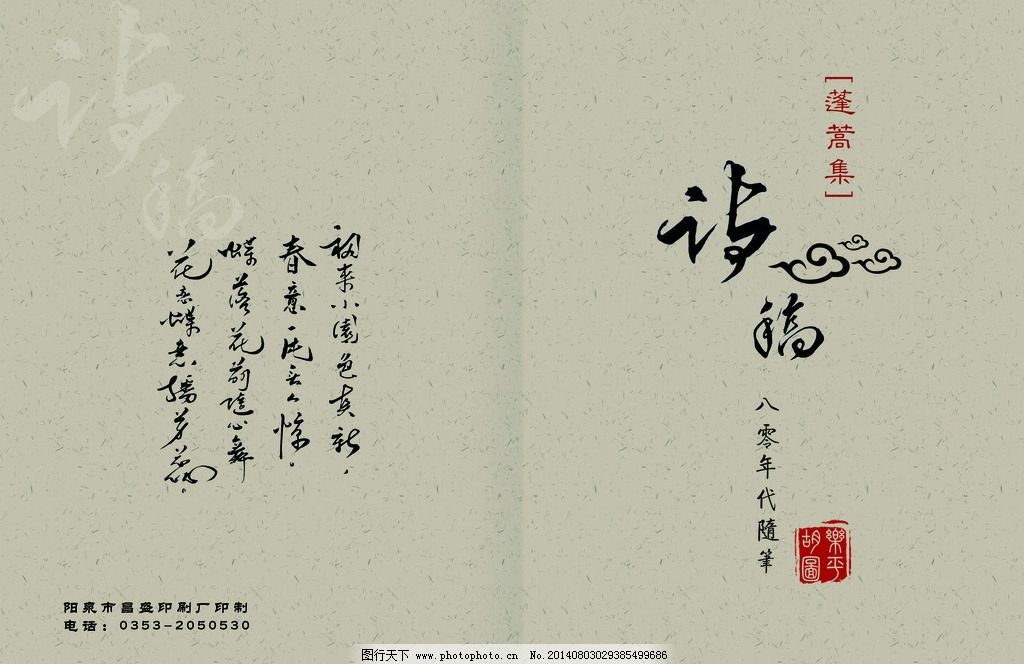 [蓬蒿集]
诗
稿
八零年代隨筆
樂平
胡圖
诗
稿
初来小園色真新，
春意一人惊。
蝶落花前隨心舞
花蝶芳蕊。
阳泉市昌盛印刷厂印制
电话：0353-2050530
图行天下 www.photophoto.cn No.20140803029385499686